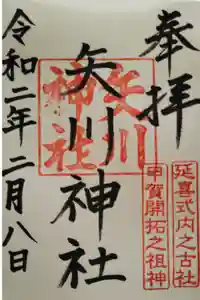 奉拝
延喜式内之古社
甲賀開拓之祖神
矢川神社
矢川神社
令和二年二月八日